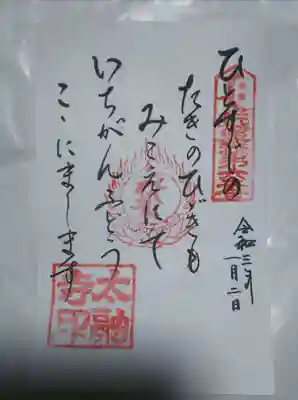 ひとすじの
たきのひびきも
みこえにて
いちがんふどう
こゝにまします
令和三年
一月二日
太融
寺印